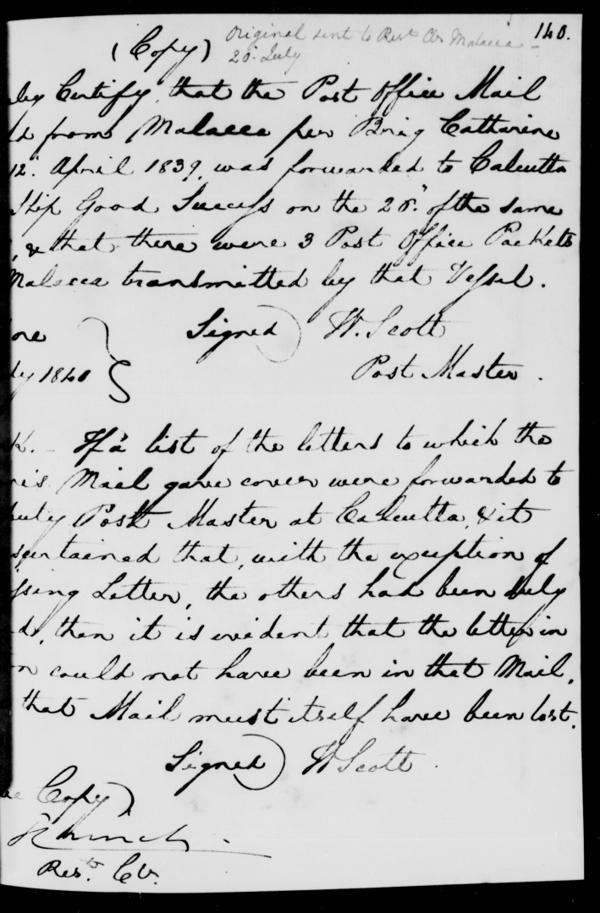 140.
(Copy) Original sent to Rest Clr Malacca -
20. July
Certify, that the Post Office Mail
from Malacca per Brig Catharine
12. April 1839, was forwarded to Calcutta
Ship Good Success on the 28." of the same
, & that there were 3 Post Office Packets
Malacca transmitted by that Vessel.
Signed) W. Scott
1840
Post Master.
If a list of the letters to which the
Mail gave cover were forwarded to
Post Master at Calcutta, & it
that, with the exception of
Letter, the others had been duly
, then it is evident that the letter in
could not have been in that Mail,
that Mail must itself have been lost.
Signed) W Scott.
Copy)
Rest. Clr.